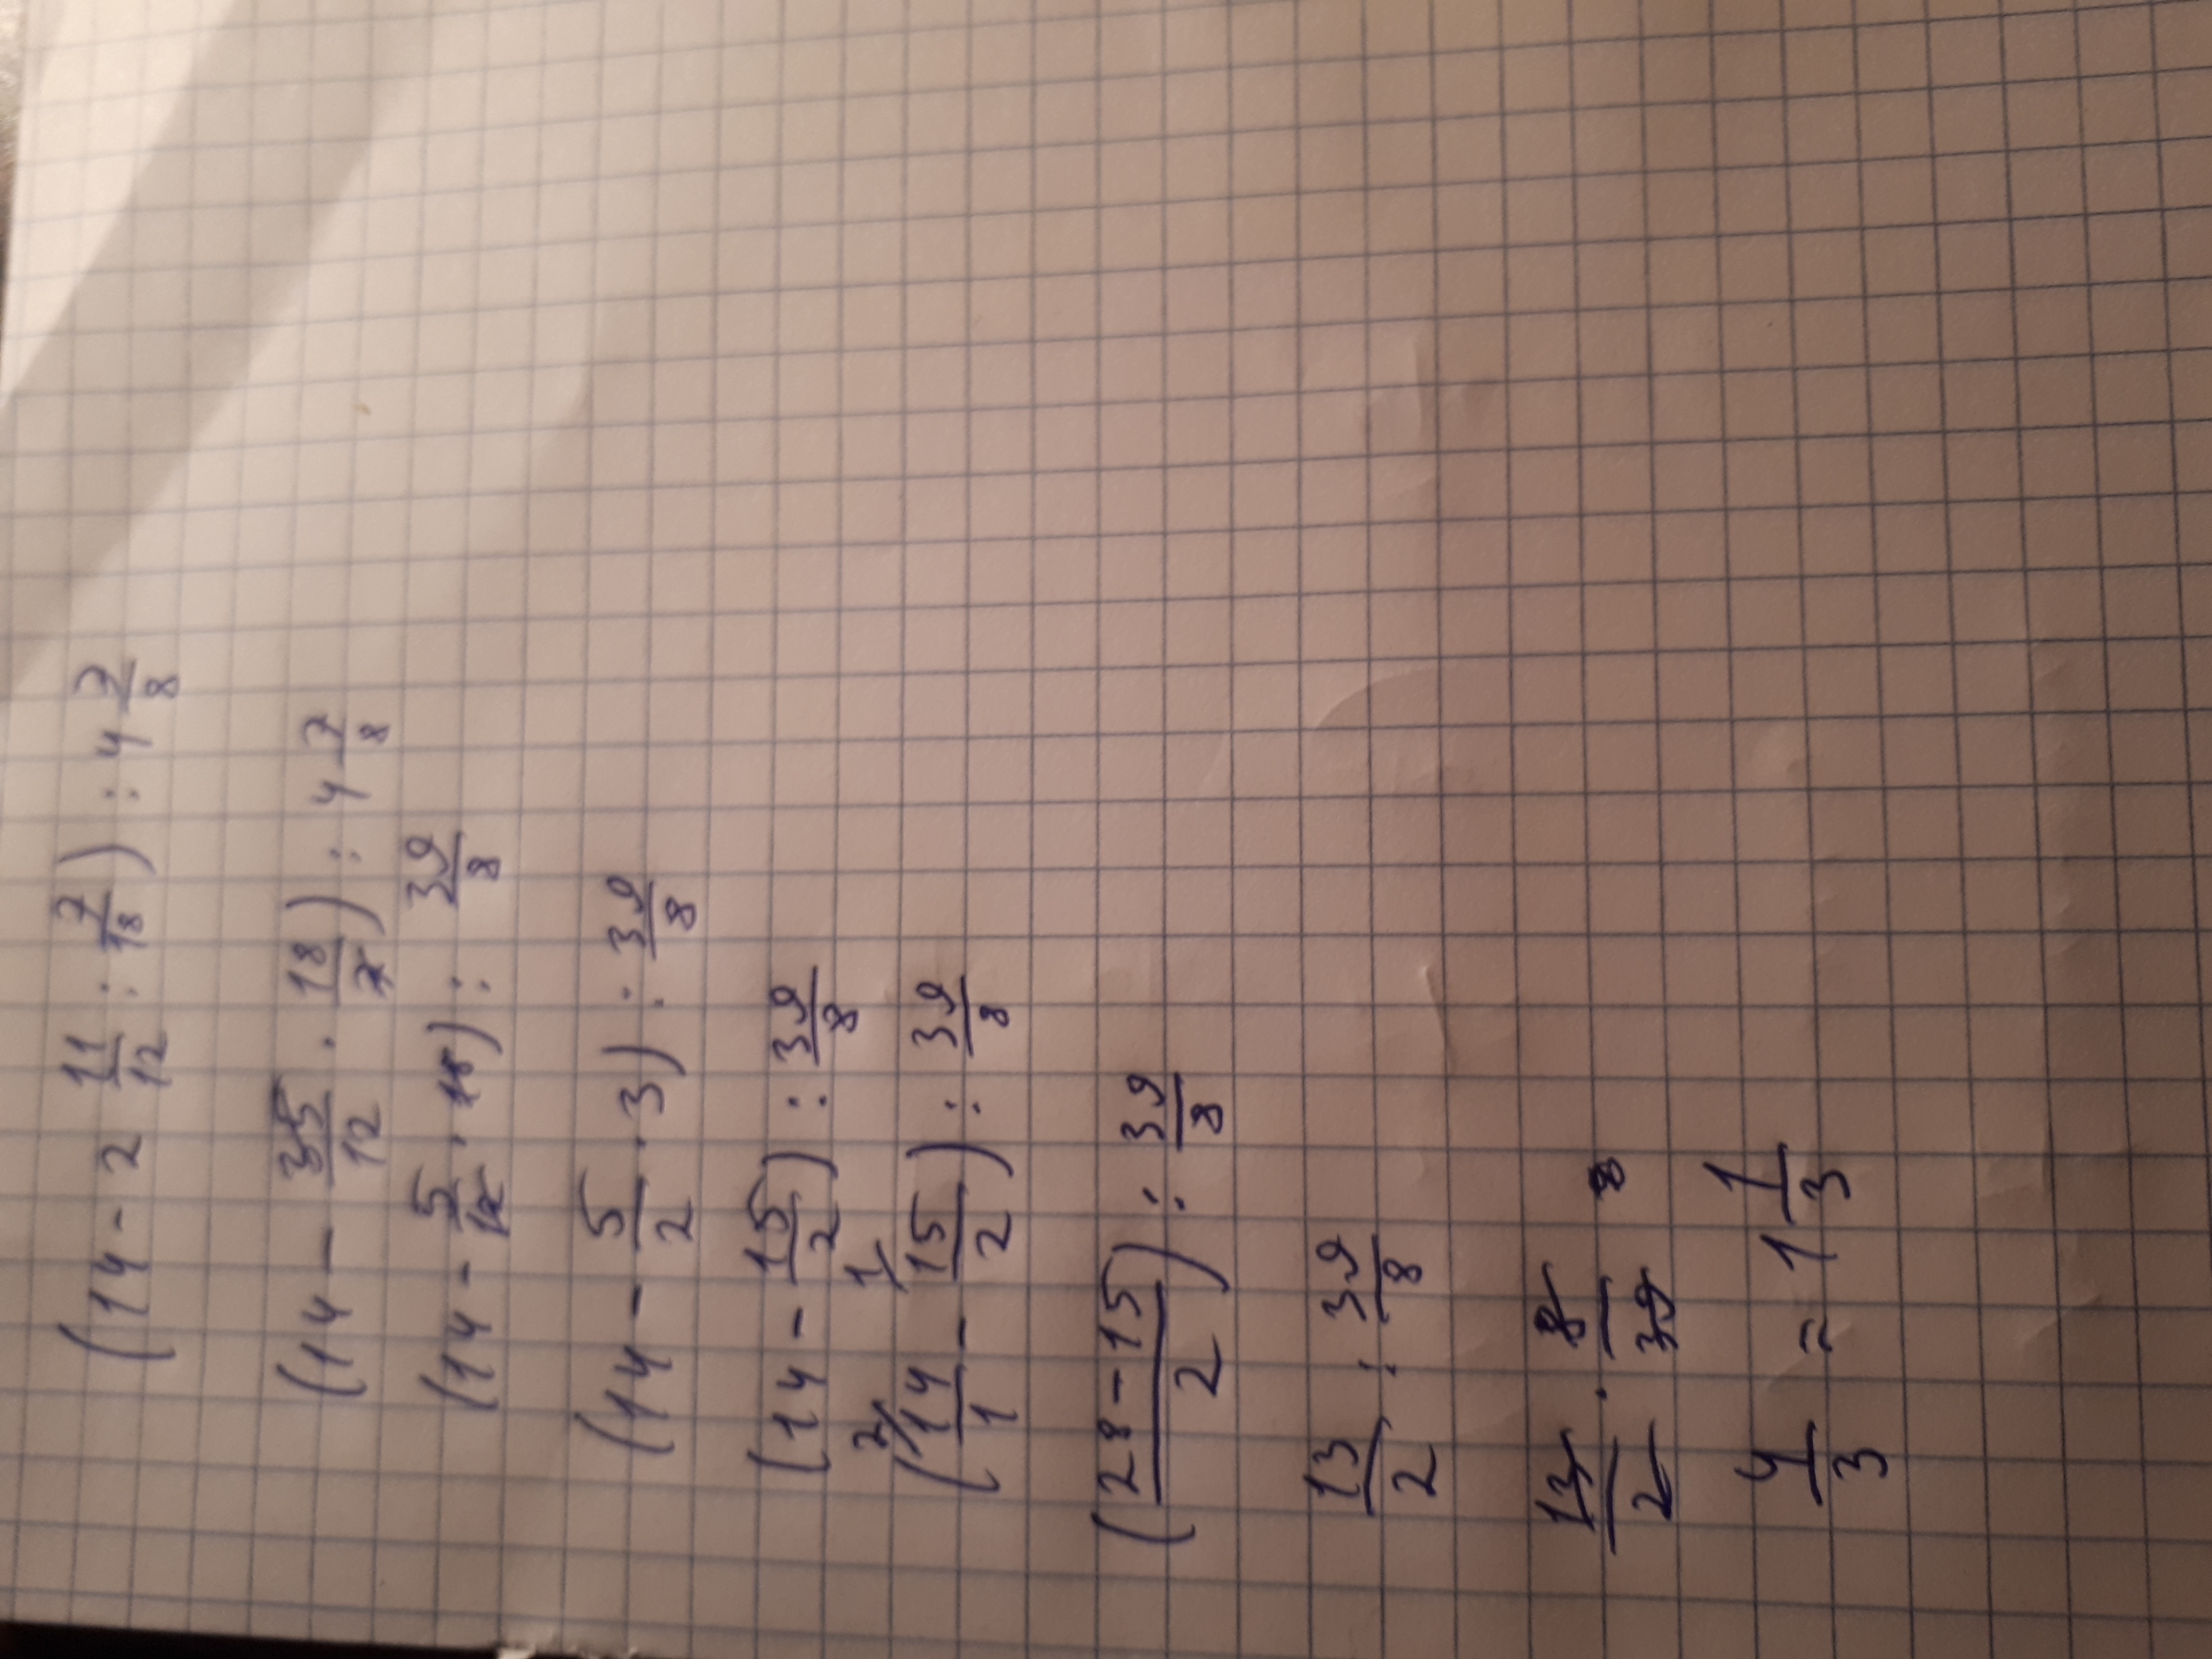 (14 - 2 11/12 : 7/18) : 4 7/8
(14 - 35/12 · 18/7) : 4 7/8
(14 - 5/12 · 18) : 39/8
(14 - 5/2 · 3) : 39/8
(14 - 15/2) : 39/8
2/ 1/
(14/1 - 15/2) : 39/8
(28-15/2) : 39/8
13/2 : 39/8
13/2 · 8/39
4/3 = 1 1/3